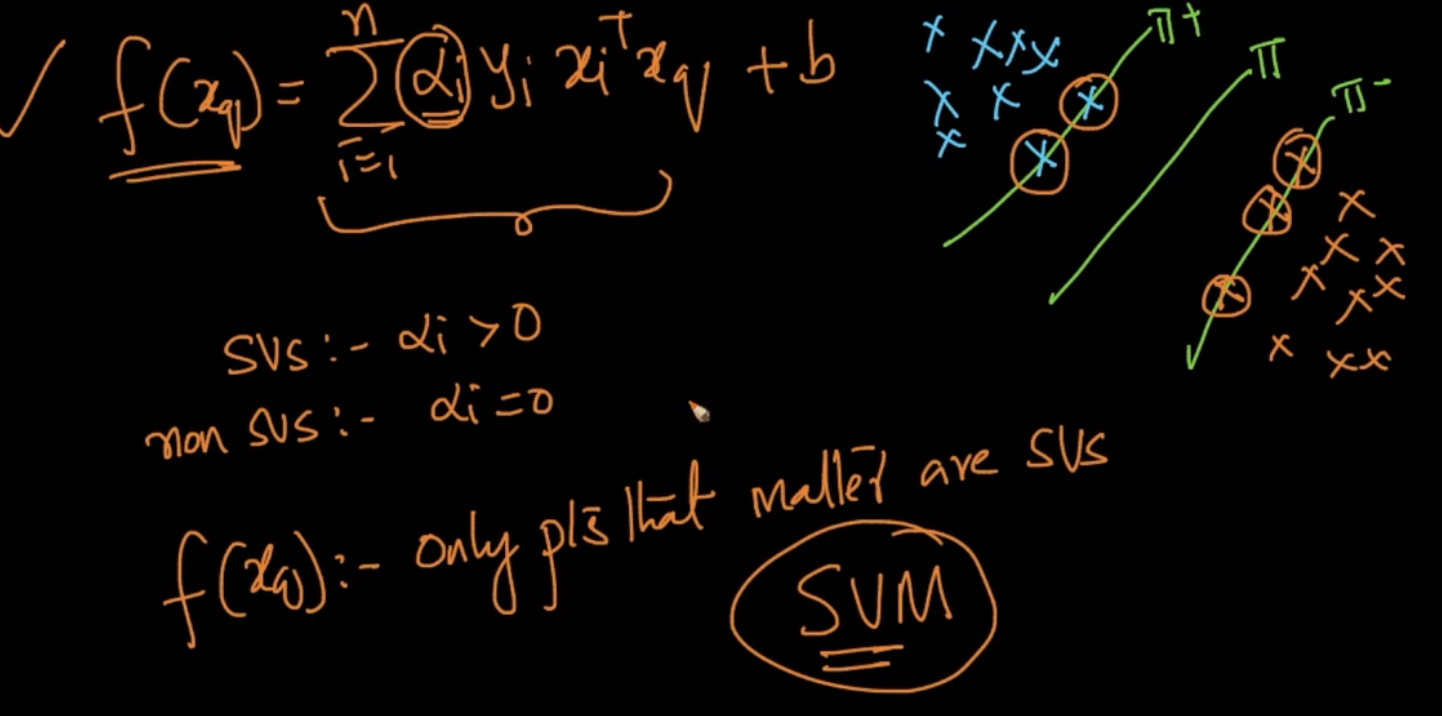 ✓ f(xq) = Σ_{i=1}^{n} αi yi xi^T xq + b
π+
π
π-
SVs :- αi > 0
non SVs :- αi = 0
f(xq) :- only pts that matter are SVs
SVM